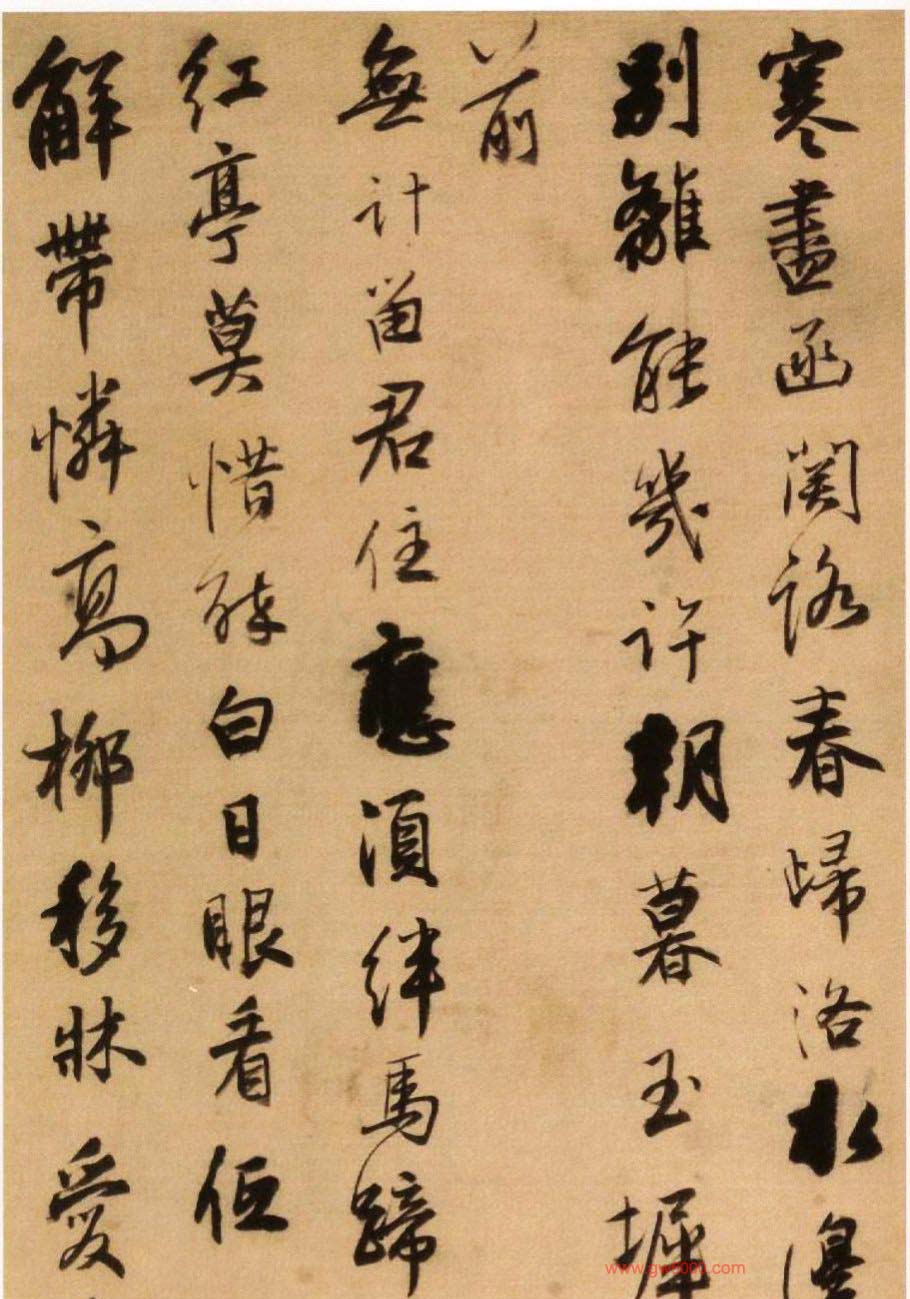 寒盡函関路春歸洛水邊
別離能幾許朝暮玉墀
前
無計留君住應須絆馬蹄
紅亭莫惜酔白日眼看低
解帶憐高柳移牀愛